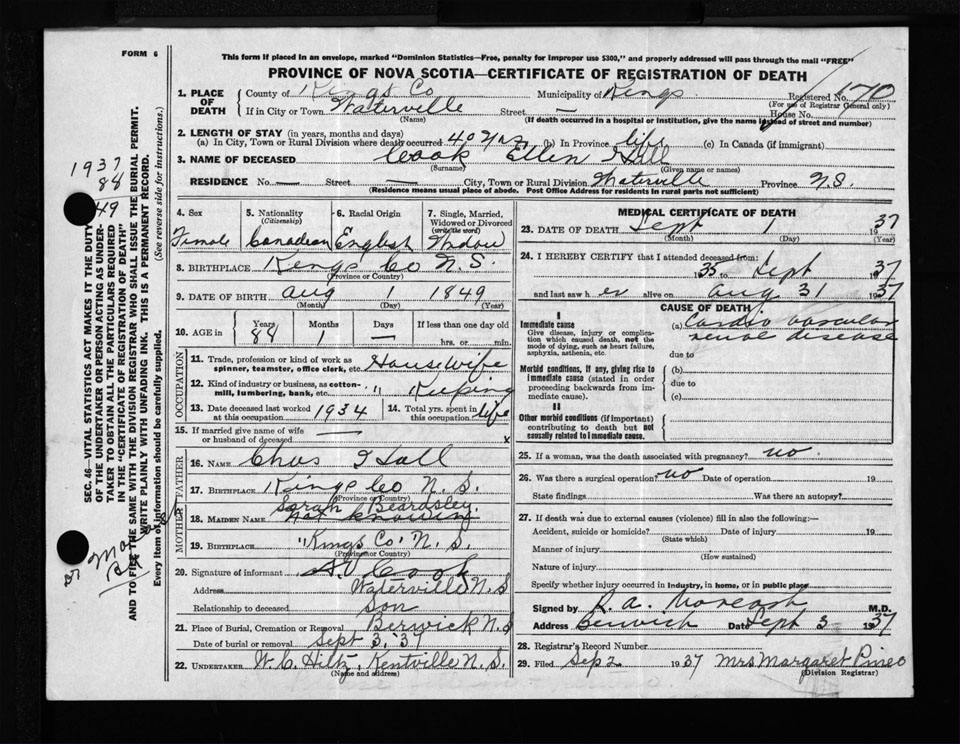 FORM 6
This form if placed in an envelope, marked "Dominion Statistics—Free, penalty for improper use $300," and properly addressed will pass through the mail "FREE"
PROVINCE OF NOVA SCOTIA—CERTIFICATE OF REGISTRATION OF DEATH
1. PLACE OF DEATH
County of Kings Co Municipality of Kings Registered No. 170
(For use of Registrar General only)
If in City or Town Waterville Street — House No.
(Name) (If death occurred in a hospital or institution, give the name instead of street and number)
2. LENGTH OF STAY (in years, months and days)
(a) In City, Town or Rural Division where death occurred 40 yrs. (b) In Province life (c) In Canada (if immigrant)
3. NAME OF DECEASED Cook Ellen Hall
(Surname) (Given name or names)
RESIDENCE No. — Street — City, Town or Rural Division Waterville Province N.S.
(Residence means usual place of abode. Post Office Address for residents in rural parts not sufficient)
4. Sex Female
5. Nationality (Citizenship) Canadian
6. Racial Origin English
7. Single, Married, Widowed or Divorced (write the word) Widow
8. BIRTHPLACE Kings Co N.S.
(Province or Country)
9. DATE OF BIRTH Aug 1 1849
(Month) (Day) (Year)
10. AGE in Years 88 Months 1 Days — If less than one day old hrs. or min.
OCCUPATION
11. Trade, profession or kind of work as spinner, teamster, office clerk, etc. Housewife
12. Kind of industry or business, as cotton-mill, lumbering, bank, etc. " Keeping
13. Date deceased last worked at this occupation 1934
14. Total yrs. spent in this occupation life
15. If married give name of wife or husband of deceased — x
FATHER
16. NAME Chas Hall
17. BIRTHPLACE Kings Co N.S.
(Province or Country)
MOTHER
Sarah Beardsley
18. MAIDEN NAME not knowing
19. BIRTHPLACE "Kings Co" N.S.
(Province or Country)
20. Signature of informant Cook
Address Waterville N.S
Relationship to deceased son
21. Place of Burial, Cremation or Removal Berwick N.S
Date of burial or removal Sept 3, '37
22. UNDERTAKER W. C. Hiltz, Kentville N.S.
(Name and address)
MEDICAL CERTIFICATE OF DEATH
23. DATE OF DEATH Sept 1 1937
(Month) (Day) (Year)
24. I HEREBY CERTIFY that I attended deceased from:
35 to Sept 1937
and last saw her alive on Aug 31 1937
CAUSE OF DEATH
I
Immediate cause
Give disease, injury or complication which caused death, not the mode of dying, such as heart failure, asphyxia, asthenia, etc.
(a) Cardio vascular
renal disease
due to
Morbid conditions, if any, giving rise to immediate cause (stated in order proceeding backwards from immediate cause).
(b)
due to
(c)
II
Other morbid conditions (if important) contributing to death but not causally related to immediate cause.
25. If a woman, was the death associated with pregnancy? no
26. Was there a surgical operation? no Date of operation 19
State findings Was there an autopsy?
27. If death was due to external causes (violence) fill in also the following:—
Accident, suicide or homicide? Date of injury 19
(State which)
Manner of injury
(How sustained)
Nature of injury
Specify whether injury occurred in industry, in home, or in public place
Signed by R. A. Moreash M.D.
Address Berwick Date Sept 3 1937
28. Registrar's Record Number
29. Filed Sep 2 1937 Mrs Margaret Pineo
(Division Registrar)
1937
88
49
SEC. 46—VITAL STATISTICS ACT MAKES IT THE DUTY OF THE UNDERTAKER OR PERSON ACTING AS UNDERTAKER TO OBTAIN ALL THE PARTICULARS REQUIRED IN THE "CERTIFICATE OF REGISTRATION OF DEATH" AND TO FILE THE SAME WITH THE DIVISION REGISTRAR WHO SHALL ISSUE THE BURIAL PERMIT.
WRITE PLAINLY WITH UNFADING INK. THIS IS A PERMANENT RECORD.
Every item of information should be carefully supplied. (See reverse side for instructions.)